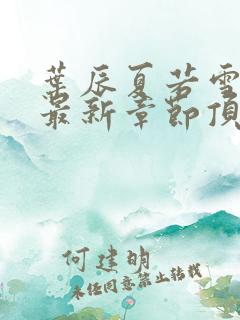 葉辰夏若雪
最新章節頂
何建明
未经同意禁止转载